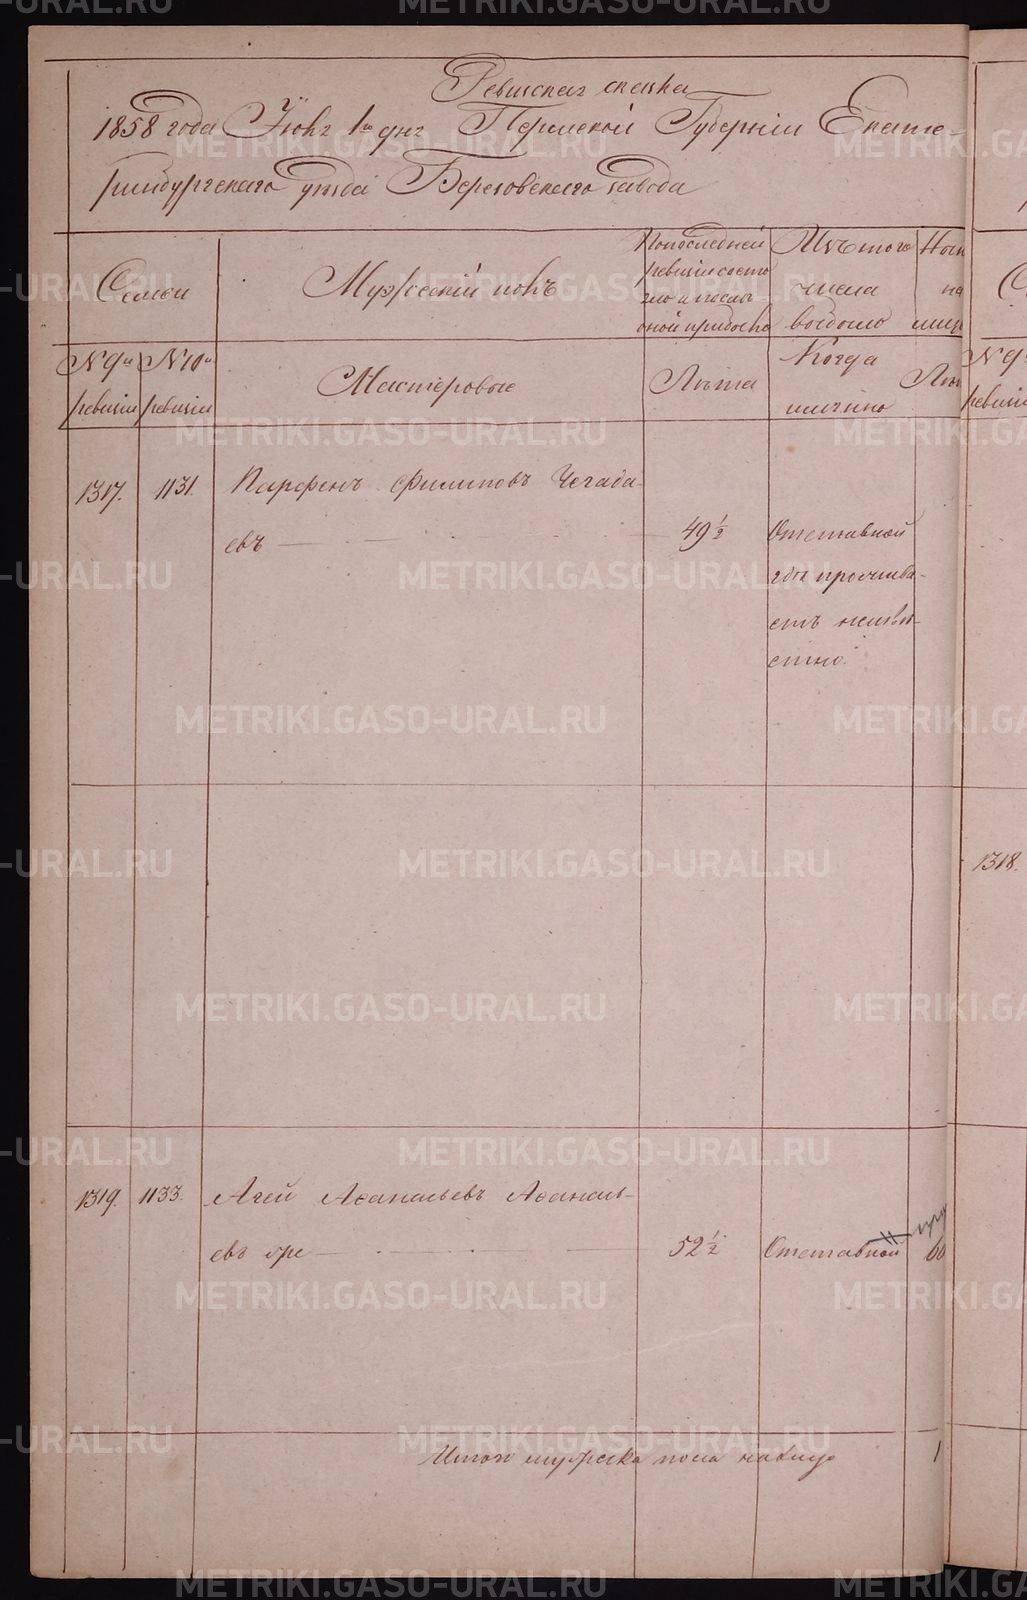 Ревизская сказка
1858 года Июня 1го дня Пермской Губерніи Екате-
ринбургскаго уѣзда Березовскаго завода
Семьи
Мужескій полъ
По последней ревизіи состояло и после оной прибыло
Изъ того числа выбыло
Ныне на лицо
№ 9й ревизіи
№ 10й ревизіи
Мастеровые
Лѣта
Когда имянно
Лѣт
№ 9й ревизіи
1317. 1131. Парфенъ Филиповъ Чегада-
евъ 49 ½ Отставной
гдѣ прожива-
етъ неизвѣ-
стно.
1318.
1319. 1133. Агей Асанасьевъ Асанась-
евъ же 52 ½ Отставной
Итого мужеска пола налицо 1
METRIKI.GASO-URAL.RU